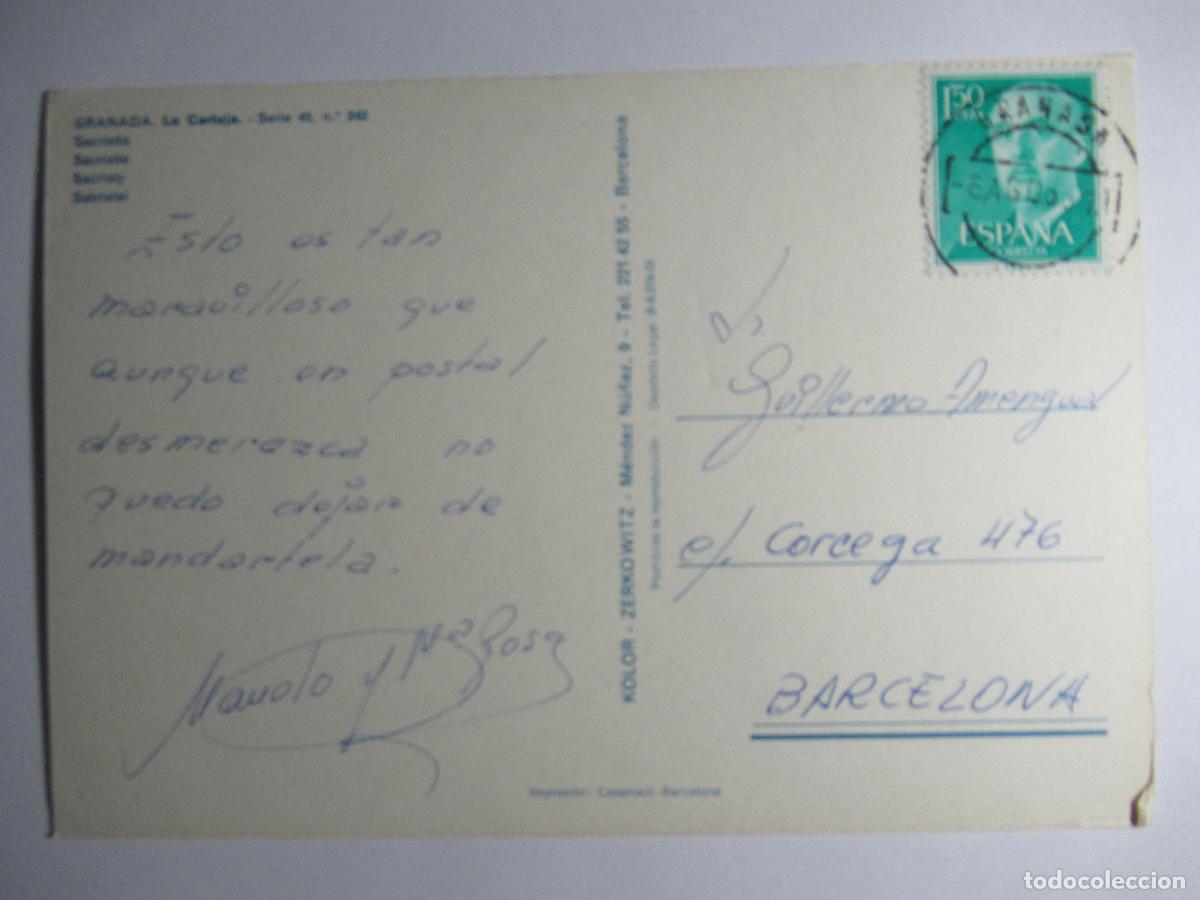 GRANADA. La Cartuja. - Serie 40, n.º 242
Sacristía
Sacristie
Sacristy
Sakristei
Esto es tan
maravilloso que
aunque en postal
desmerezca no
puedo dejar de
mandartela.
Manolo y Mª Rosa
KOLOR - ZERKOWITZ - Méndez Núñez, 9 - Tel. 221 42 55 - Barcelona
Prohibida la reproducción - Depósito Legal
Impresión: Casamajó - Barcelona
1'50
PTAS
ESPAÑA
CORREOS
GRANADA
Guillermo Amengual
c/. Corcega 476
BARCELONA
todocoleccion